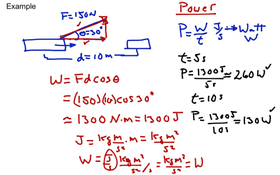 Example
F=150N
θ=30°
d=10m
W = Fd cosθ
=(150)(10)cos30°
≈ 1300 N·m = 1300 J
J = kg m/s² · m = kg m²/s²
W = J/s kg m²/s²/s = kg m²/s³ = W
Power
P = W/t J/s → Watt W
t=5s
P = 1300J/5s = 260W
t=10s
P = 1300J/10s = 130W